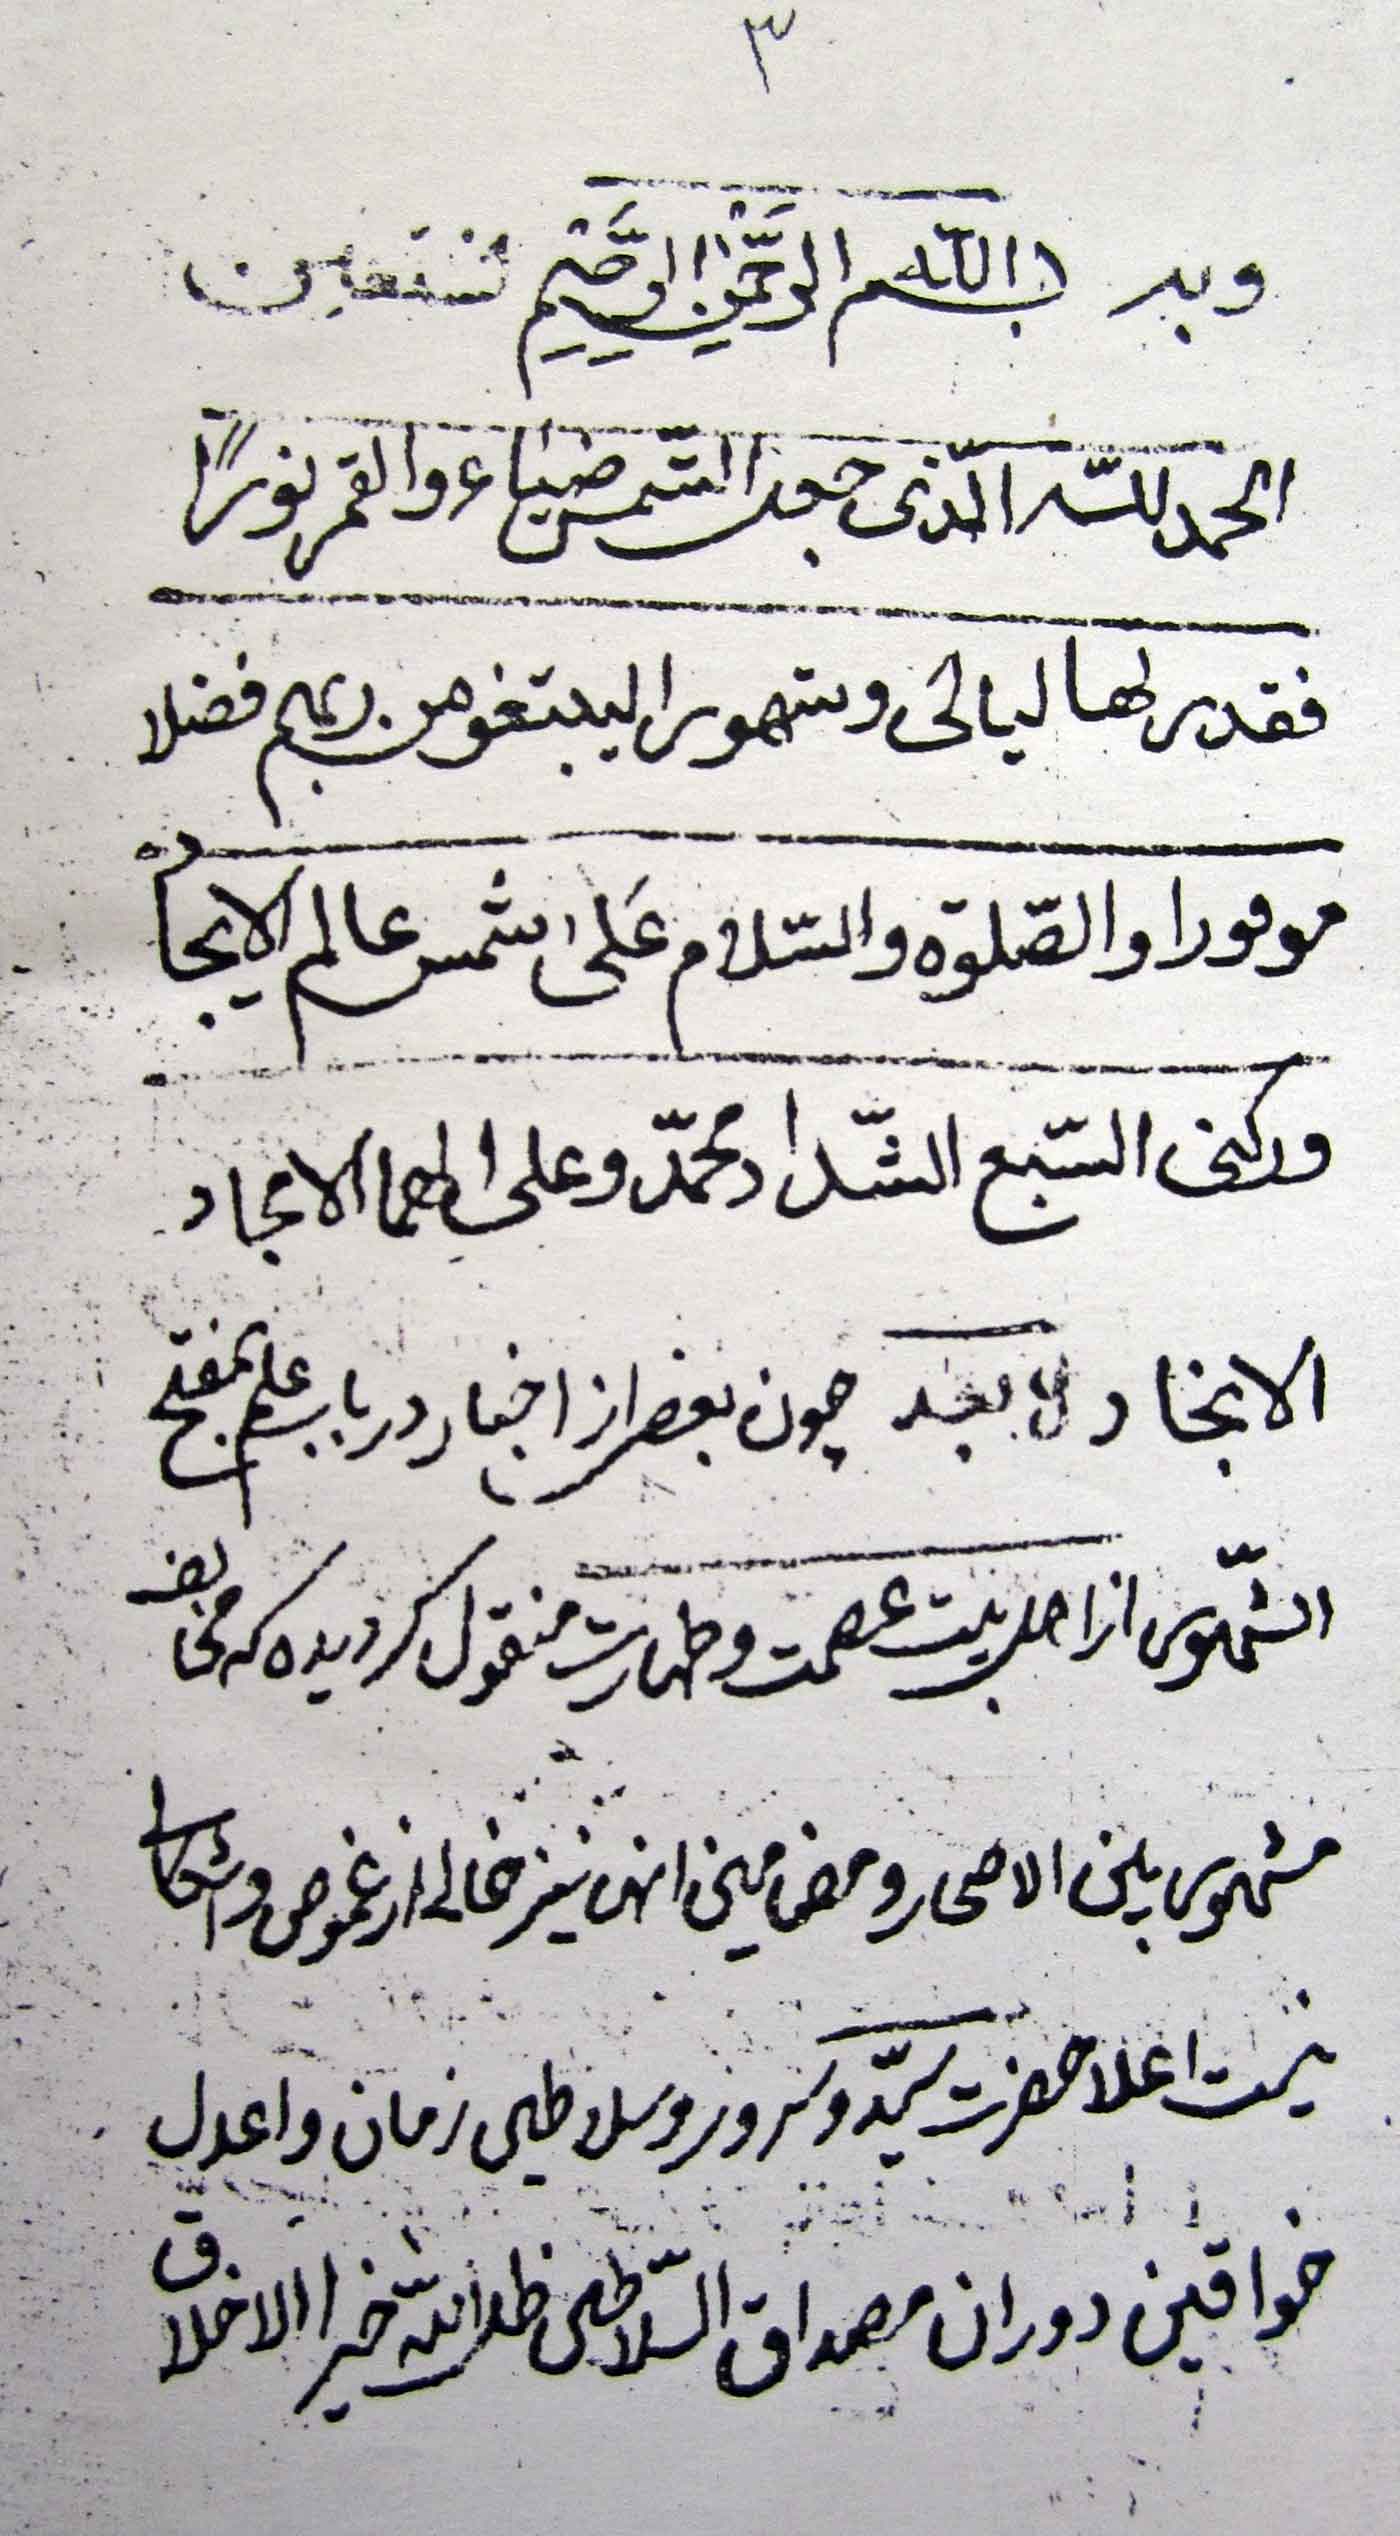 ٣
وبه بسم الله الرَّحمٰن الرَّحيم نستعين
الحمد للّه الّذى جعل الشّمس ضياء والقمر نورًا
فقدر لها ليالى وشهورا ليبتغو من ربهم فضلا
موفورا والصّلوة والسّلام عَلى شمس عالم الايجاد
وركنى السّبع الشّداد محمّد وعلى الهما الامجاد
الانجاد بعد چون بعضى از اخبار در باب علم بمفتح
الشّهور از اهل بيت عصمت وطهارت منقول كرديده كه مخالف
مشهور بين الا ومضامين انها نيز خالى از غموض واشكال
نيست اعلا حضرت سيّد وسرور وسلاطين زمان واعدل
خواقين دوران مصداق السّلاطين ظل اللّه خير الاخلاق